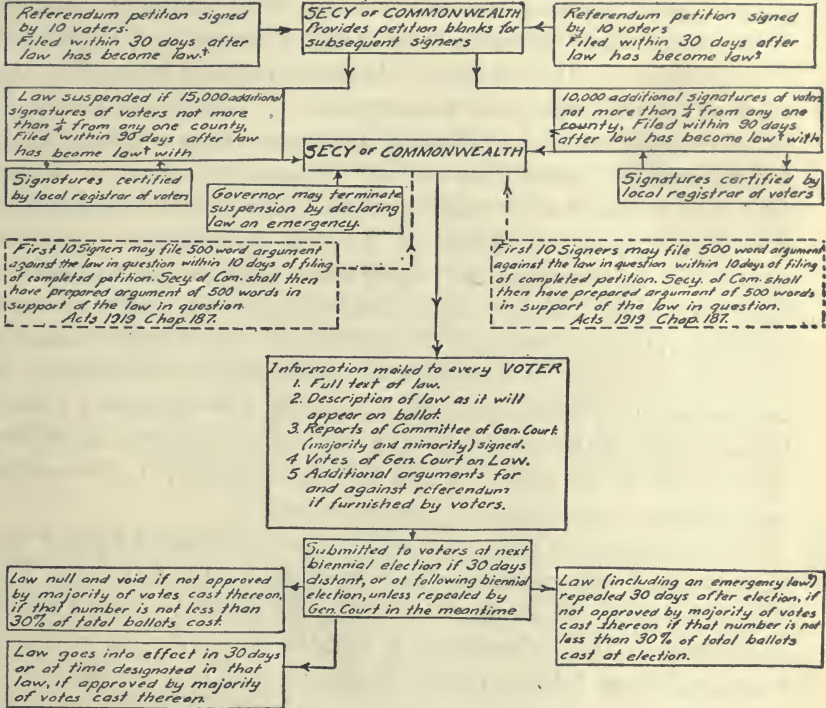 Referendum petition signed
by 10 voters.
Filed within 30 days after
law has become law.†
SECY OF COMMONWEALTH
Provides petition blanks for
subsequent signers
Referendum petition signed
by 10 voters
Filed within 30 days after
law has become law§
Law suspended if 15,000 additional
signatures of voters not more
than ¼ from any one county,
Filed within 90 days after law
has become law† with
10,000 additional signatures of voters
not more than ¼ from any one
county, Filed within 90 days
after law has become law† with
SECY OF COMMONWEALTH
Signatures certified
by local registrar of voters
Governor may terminate
suspension by declaring
law an emergency.
Signatures certified by
local registrar of voters
First 10 Signers may file 500 word argument
against the law in question within 10 days of filing
of completed petition. Secy. of Com. shall then
have prepared argument of 500 words in
support of the law in question.
Acts 1919 Chap. 187.
First 10 Signers may file 500 word argument
against the law in question within 10 days of filing
of completed petition. Secy. of Com. shall
then have prepared argument of 500 words
in support of the law in question.
Acts 1919 Chap. 187.
Information mailed to every VOTER
1. Full text of law.
2. Description of law as it will
appear on ballot.
3. Reports of Committee of Gen. Court
(majority and minority) signed.
4 Votes of Gen. Court on Law.
5 Additional arguments for
and against referendum
if furnished by voters.
Submitted to voters at next
biennial election if 30 days
distant, or at following biennial
election, unless repealed by
Gen. Court in the meantime
Law null and void if not approved
by majority of votes cast thereon,
if that number is not less than
30% of total ballots cast.
Law (including an emergency law)
repealed 30 days after election, if
not approved by majority of votes
cast thereon if that number is not
less than 30% of total ballots
cast at election.
Law goes into effect in 30 days
or at time designated in that
law, if approved by majority
of votes cast thereon.